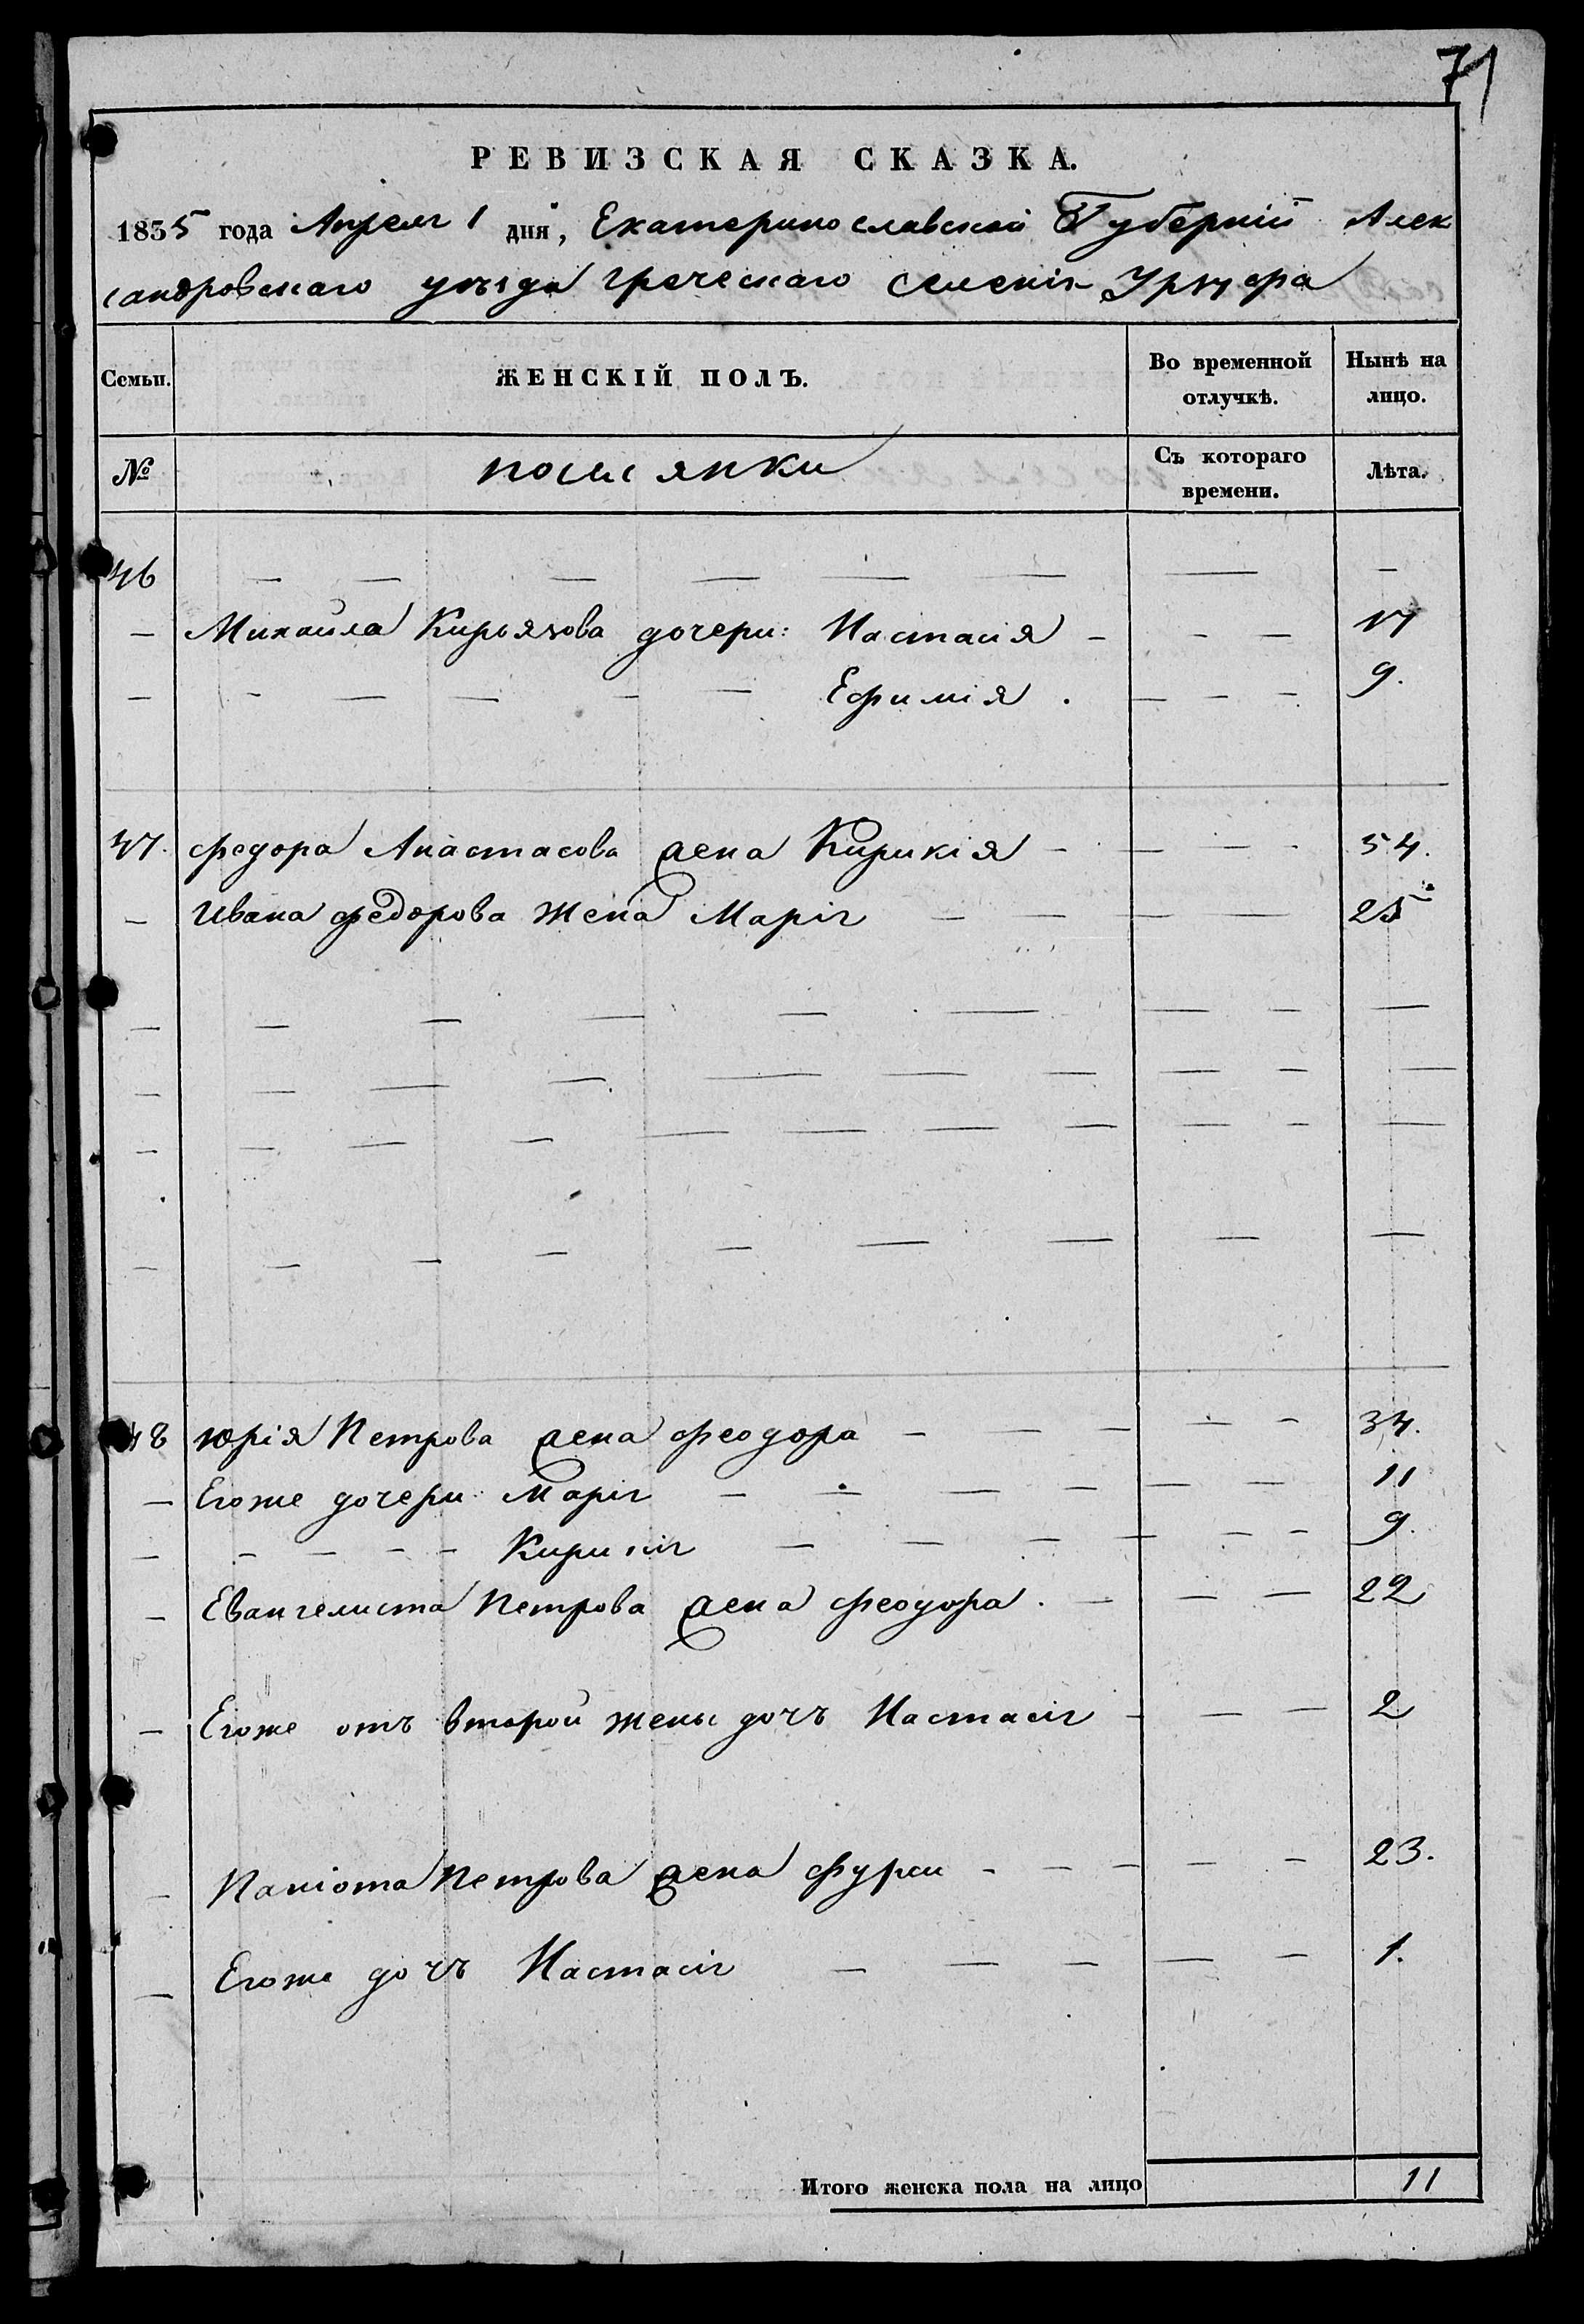 71
РЕВИЗСКАЯ СКАЗКА.
1835 года Апреля 1 дня, Екатеринославской Губерніи Алек
сандровскаго уѣзда греческаго селенія Урзуфа
Семьи. ЖЕНСКІЙ ПОЛЪ. Во временной отлучкѣ. Нынѣ на лицо.
№ поселянки Съ котораго времени. Лѣта.
46 — — — — — — — —
— Михайла Кирьякова дочери: Настасія - - — 17
— - — — - — Ефимія . — — - 9.
47. федора Анастасова жена Кирикія - — — - 54.
— Ивана федорова жена Марія — — — — 25
— — — — — — — — —
— — — — — — — — — — —
— — — — — — — — — — —
— — — — — — — — —
48 юрія Петрова жена феодора — — — — - 34.
— Егоже дочери: Марія — — — — — — 11
— - — - - Кирикія — — — — - - 9.
— Евангелиста Петрова жена феодора. — — — 22
— Егоже отъ второй жены дочъ Настасія - — — 2
— Паніота Петрова жена фурси - - — — - 23.
— Егоже дочъ Настасія — — — — — 1.
Итого женска пола на лицо 11